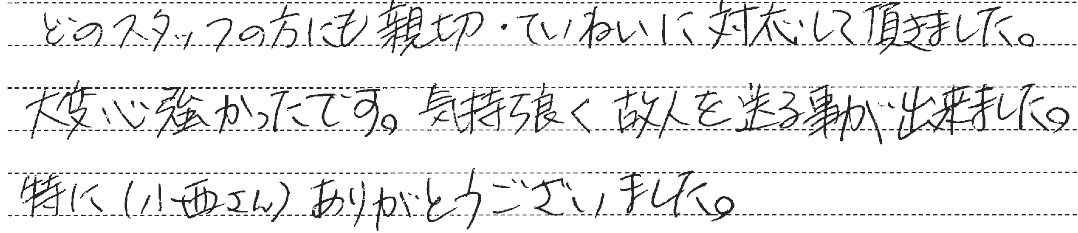 どのスタッフの方にも親切・ていねいに対応して頂きました。
大変心強かったです。気持ち良く故人を送る事が出来ました。
特に(小西さん)ありがとうございました。